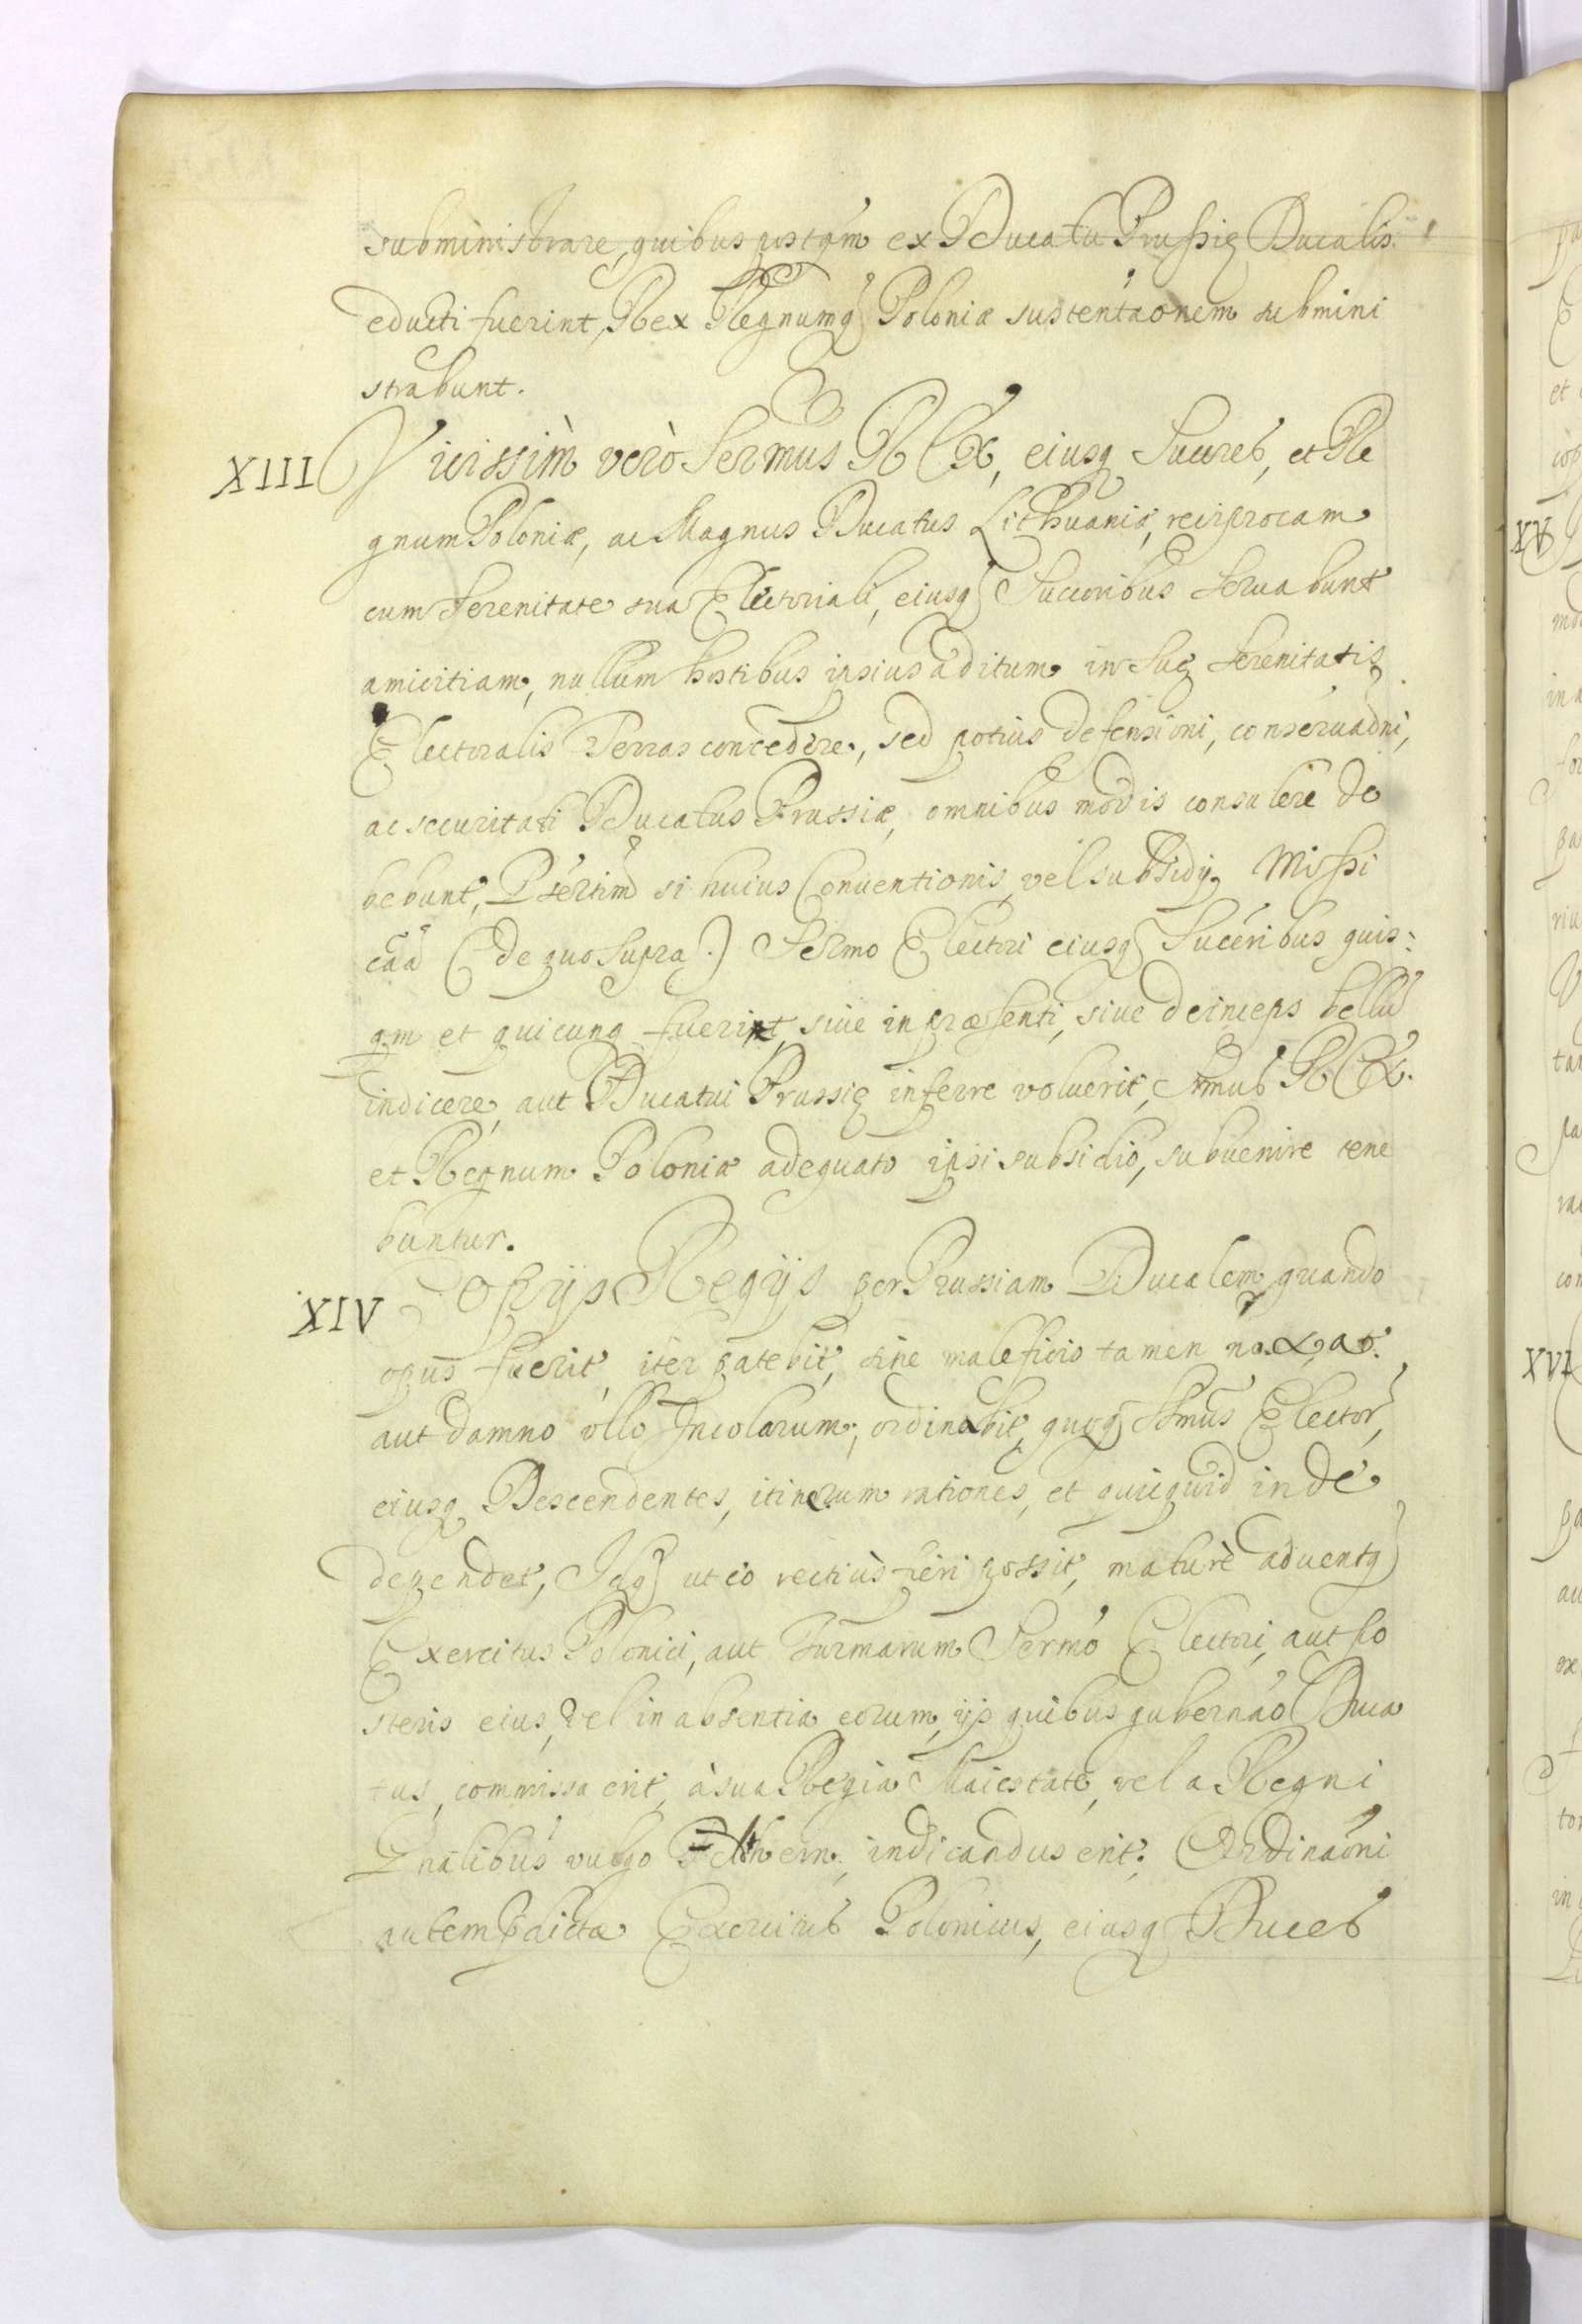 subministrare, quibus postqm̃ ex Ducatu Prussię Ducalis
educti fuerint, Rex Regnumq Poloniæ sustentãonem submini
strabunt.
XIII Vicissim̀ verò Sermus REX, eiusq Succres, et Re
gnum Poloniæ, ac Magnus Ducatus Lithuaniæ, reciprocam
cum Serenitate sua Electoriali, eiusq Succoribus seruabunt
amicitiam, nullum hostibus ipsius aditum in Suę Serenitatis
Electoralis Terras concedere, sed potius defensioni, conseruaõni,
ac securitati Ducatus Prussiæ, omnibus modis consulere de
bebunt, Psertim si huius Conuentionis, vel subsidij Missi
cãa (de quo supra.) Sermo Electori eiusq Succribus quis:
qm et quicunq fuerint, siue in præsenti, siue deinceps bellũ
indicere, aut Ducatui Prussię inferre voluerit, Smus REX.
et Regnum Poloniæ adequato ipsi subsidio, subuenire tene
buntur.
XIV Copijs Regijs per Prussiam Ducalem, quando
opus fuerit, iter patebit, sine maleficio tamen
aut damno ollo Incolarum; ordinabit, quoq Smus Elector,
eiusq Descendentes, itinerum rationes, et quicquid inde
dependet, Idq ut eo rectiùs fieri possit, maturè aduentq
Exercitus Polonici, aut Turmarum Sermo Electori, aut Po
steris eius, vel in absentia eorum, ijs quibus gubernão Duca
tus, commissa erit, à sua Regia Maiestate, vel a Regni
Gnãlibus vulgo indicandus erit. Ordinãoni
autem pdictæ Exercitus Polonicus, eiusq Duces
XV
XVI